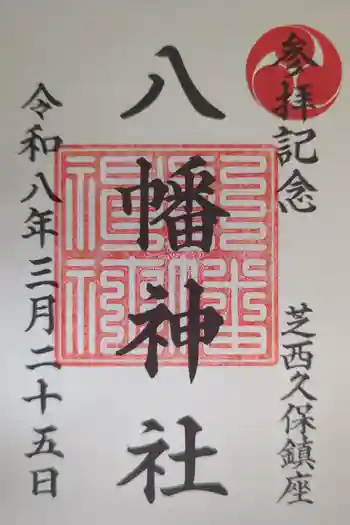 参拝記念
芝西久保鎮座
八幡神社
令和八年三月二十五日